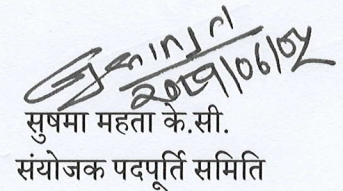 २०७९/०६/०५
सुषमा महता के.सी.
संयोजक पदपूर्ति समिति